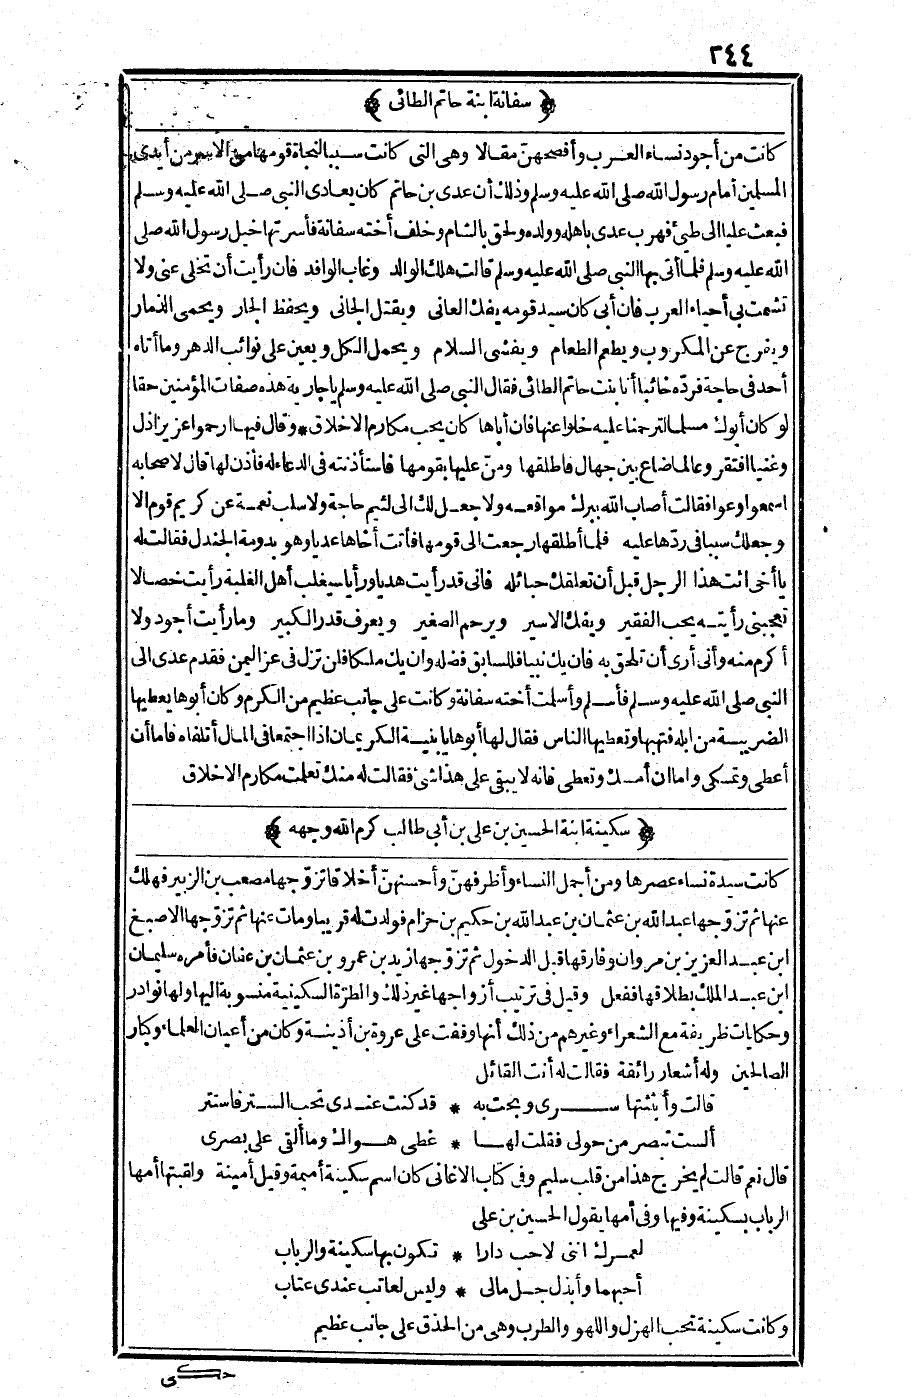 ٢٤٤
﴿ سفانة ابنة حاتم الطائى ﴾
كانت من أجود نساء العرب وأفصحهنّ مقالا وهى التى كانت سببا لنجاة قومها من الاسر من أيدى
المسلمين أمام رسول الله صلى الله عليه وسلم وذلك أن عدى بن حاتم كان يعادى النبى صلى الله عليه وسلم
فبعث عليا الى طيئ فهرب عدى باهله وولده ولحق بالشام وخلف أخته سفانة فأسرتها خيل رسول الله صلى
الله عليه وسلم فلما أتى بها النبى صلى الله عليه وسلم قالت هلك الوالد وغاب الوافد فان رأيت أن تخلى عنى ولا
تشمت بى أحياء العرب فان أبى كان سيد قومه يفك العانى ويقتل الجانى ويحفظ الجار ويحمى الذمار
ويفرج عن المكروب ويطعم الطعام ويفشى السلام ويحمل الكل ويعين على نوائب الدهر وما أتاه
أحد فى حاجة فردّه خائبا أنا بنت حاتم الطائى فقال النبى صلى الله عليه وسلم ياجارية هذه صفات المؤمنين حقا
لو كان أبوك مسلما لترحمنا عليه خلوا عنها فان أباها كان يحب مكارم الاخلاق * وقال فيها ارحموا عزيزا ذل
وغنيا افتقر وعالما ضاع بين جهال فاطلقها ومنّ عليها بقومها فاستأذنته فى الدعاء له فأذن لها قال لاصحابه
اسمعوا وعوا فقالت أصاب الله ببرك مواقعه ولا جعل لك الى لئيم حاجة ولا سلب نعمة عن كريم قوم الا
وجعلك سببا فى ردّها عليه فلما أطلقها رجعت الى قومها فأتت أخاها عديا وهو بدومة الجندل فقالت له
يا أخى ائت هذا الرجل قبل أن تعلقك حبائله فانى قد رأيت هديا ورأيا سيغلب أهل الغلبة رأيت خصالا
تعجبنى رأيته يحب الفقير ويفك الاسير ويرحم الصغير ويعرف قدر الكبير وما رأيت أجود ولا
أكرم منه وأنى أرى أن تلحق به فان يك نبيا فللسابق فضله وان يك ملكا فلن تزل فى عز اليمن فقدم عدى الى
النبى صلى الله عليه وسلم فأسلم وأسلمت أخته سفانة وكانت على جانب عظيم من الكرم وكان أبوها يعطيها
الضريبة من ابله فتهبها وتعطيها الناس فقال لها أبوها يابنية الكريمان اذا اجتمعا فى المال أتلفاه فاما أن
أعطى وتمسكى واما ان أمسك وتعطى فانه لا يبقى على هذا شئ فقالت له منك تعلمت مكارم الاخلاق
﴿ سكينة ابنة الحسين بن على بن أبى طالب كرم الله وجهه ﴾
كانت سيدة نساء عصرها ومن أجمل النساء وأظرفهنّ وأحسنهنّ أخلاقا تزوّجها مصعب بن الزبير فهلك
عنها ثم تزوّجها عبد الله بن عثمان بن عبد الله بن حكيم بن حزام فولدت له قريبا ومات عنها ثم تزوّجها الاصبغ
ابن عبد العزيز بن مروان وفارقها قبل الدخول ثم تزوّجها زيد بن عمرو بن عثمان بن عفان فأمره سليمان
ابن عبد الملك بطلاقها ففعل وقيل فى ترتيب أزواجها غير ذلك والطرّة السكينية منسوبة اليها ولها نوادر
وحكايات ظريفة مع الشعراء وغيرهم من ذلك أنها وقفت على عروة بن أذينة وكان من أعيان العلماء وكبار
الصالحين وله أشعار رائقة فقالت له أنت القائل
قالت وأبثثتها سرى وبحت به * قد كنت عندى تحب الستر فاستتر
ألست تبصر من حولى فقلت لها * غطى هواك وما ألقى على بصرى
قال نعم قالت لم يخرج هذا من قلب سليم وفى كتاب الاغانى كان اسم سكينة أميمة وقيل أمينة ولقبتها أمها
الرباب بسكينة وفيها وفى أمها يقول الحسين بن على
لعمرك اننى لاحب دارا * تكون بها سكينة والرباب
أحبهما وأبذل جل مالى * وليس لعاتب عندى عتاب
وكانت سكينة تحب الهزل واللهو والطرب وهى من الحذق على جانب عظيم
حكى